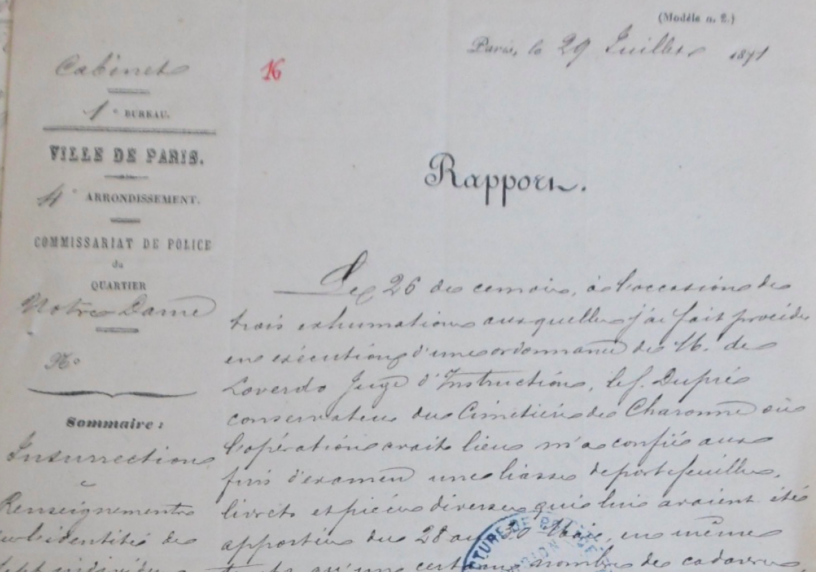 (Modèle n. 2.)
Paris, le 29 Juillet 1871
Cabinet
16
1er BUREAU.
VILLE DE PARIS.
4e ARRONDISSEMENT.
Rapport.
COMMISSARIAT DE POLICE
du
QUARTIER
Notre Dame
No
Sommaire:
Insurrection
Renseignements
sur l'identité de
sept individus
Le 26 de ce mois, à l'occasion de
trois exhumations auxquelles j'ai fait procéder
en exécution d'une ordonnance de M. de
Loverdo Juge d'Instruction, le s. Dupré
conservateur du Cimetière de Charonne où
l'opération avait lieu m'a confié aux
fins d'examen une liasse de portefeuilles,
livrets et pièces diverses qui lui avaient été
apportées du 28 au 30 Mai, en même
temps qu'un certain nombre de cadavres,